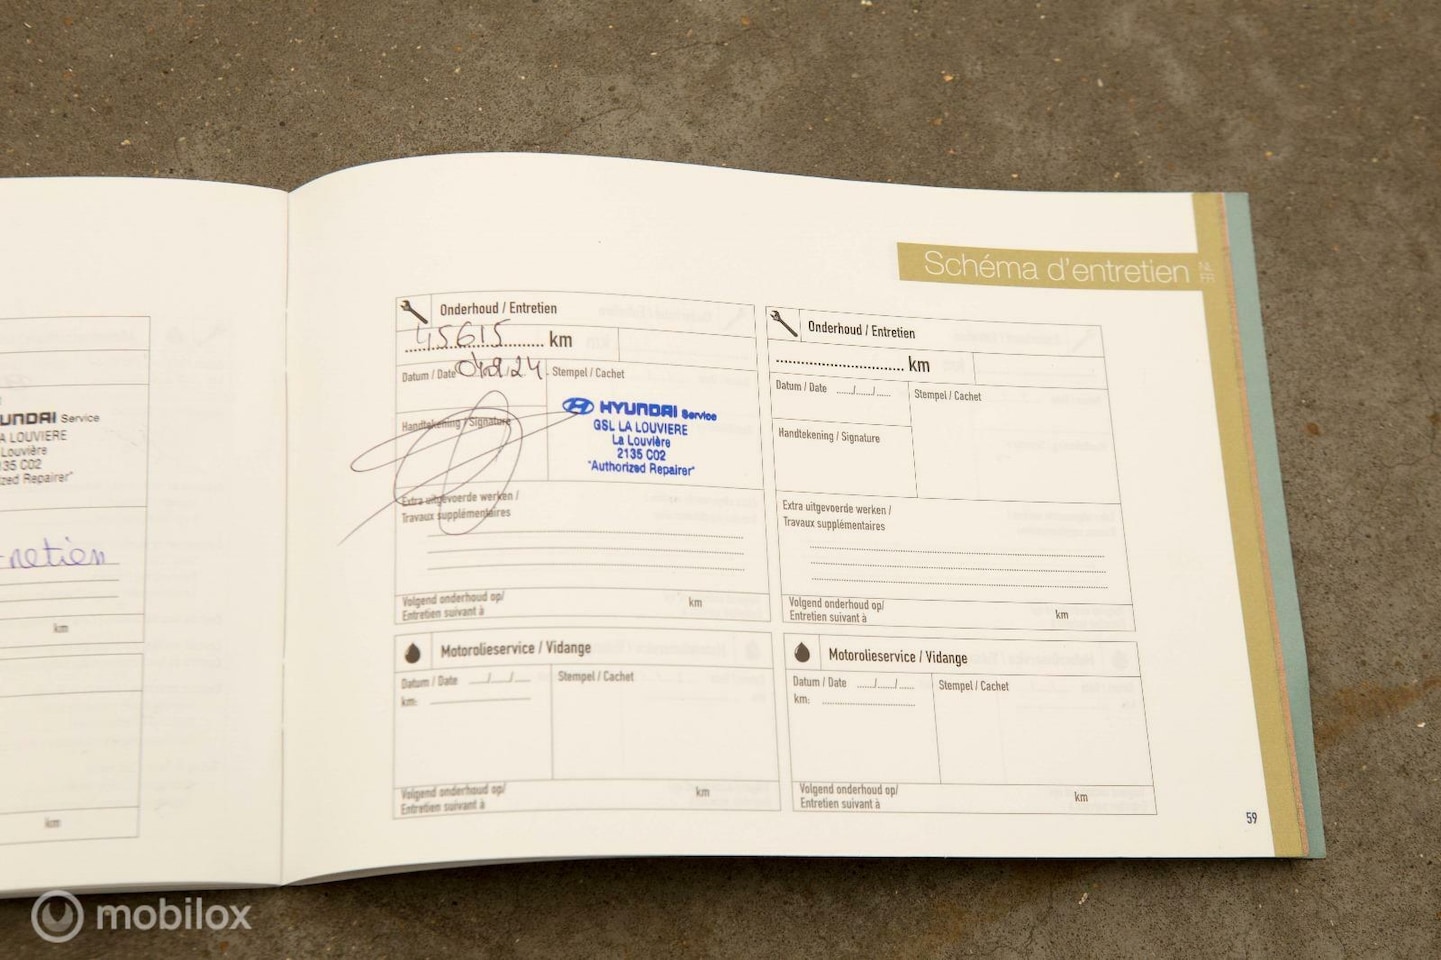 Schéma d'entretien
NL
FR
UNDAI Service
A LOUVIERE
Louvière
135 C02
zed Repairer"
retien
km
km
Onderhoud / Entretien
45615 km
Datum / Date
Stempel / Cachet
HYUNDAI Service
GSL LA LOUVIERE
La Louvière
2135 C02
"Authorized Repairer"
Handtekening / Signature
Extra uitgevoerde werken /
Travaux supplémentaires
Volgend onderhoud op/
Entretien suivant à
km
Onderhoud / Entretien
km
Datum / Date ..../..../....
Stempel / Cachet
Handtekening / Signature
Extra uitgevoerde werken /
Travaux supplémentaires
Volgend onderhoud op/
Entretien suivant à
km
Motorolieservice / Vidange
Datum / Date ..../..../....
Stempel / Cachet
km:
Volgend onderhoud op/
Entretien suivant à
km
Motorolieservice / Vidange
Datum / Date ..../..../....
Stempel / Cachet
km:
Volgend onderhoud op/
Entretien suivant à
km
59
mobilox